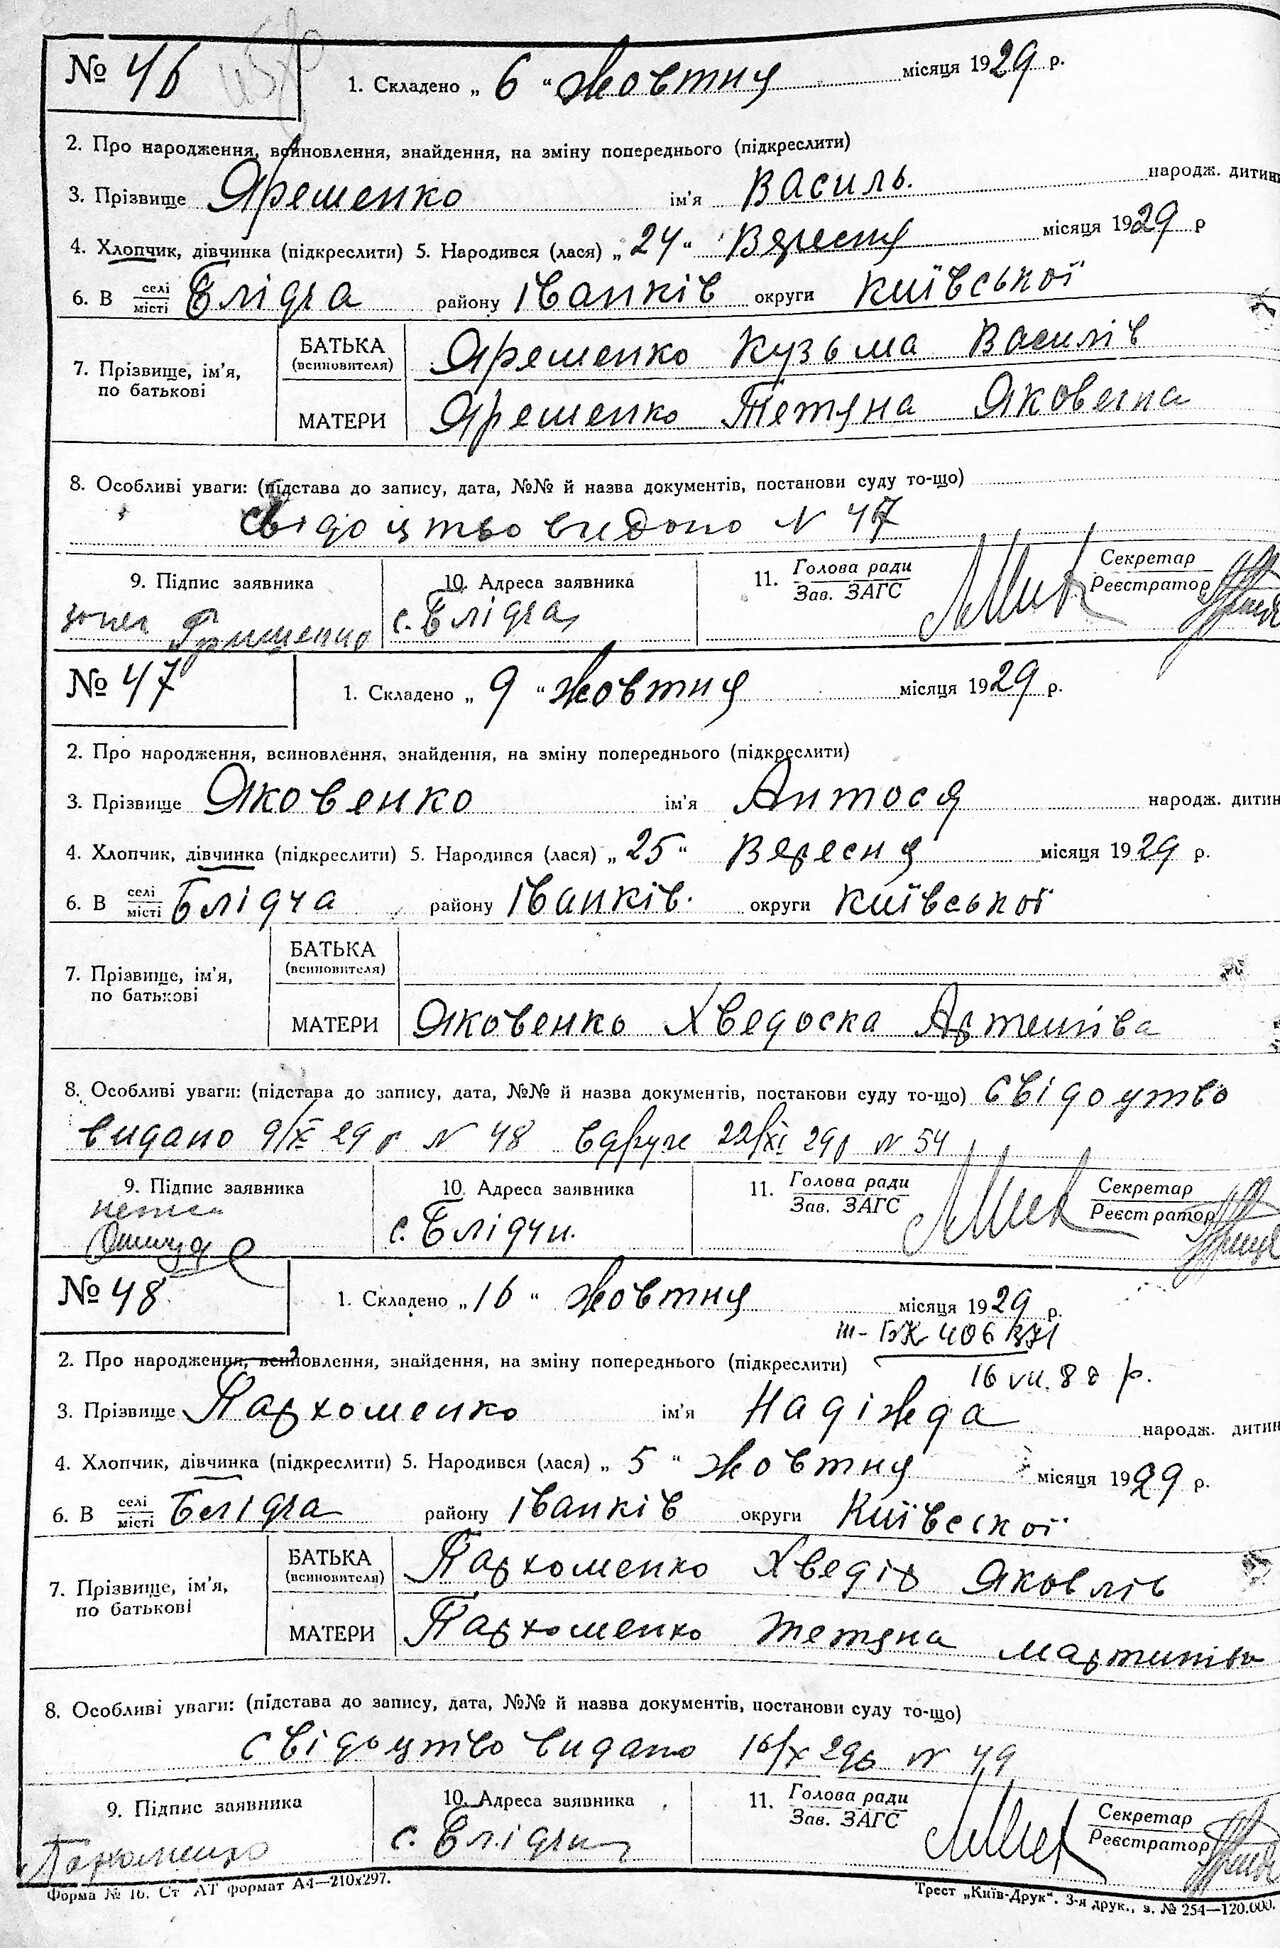 № 46
1. Складено „ 6 “ Жовтня місяця 1929 р.
2. Про народження, всиновлення, знайдення, на зміну попереднього (підкреслити)
3. Прізвище Ярешенко ім'я Василь. народж. дитин
4. Хлопчик, дівчинка (підкреслити) 5. Народився (лася) „ 24 “ Вересня місяця 1929 р
6. В селі місті Блідча району Іванків округи Київської
7. Прізвище, ім'я, по батькові
БАТЬКА (всиновителя) Ярешенко Кузьма Василів
МАТЕРИ Ярешенко Тетяна Яковегна
8. Особливі уваги: (підстава до запису, дата, №№ й назва документів, постанови суду то-що)
свідоцтво видоно N 47
9. Підпис заявника
10. Адреса заявника
с. Блідча
11. Голова ради Зав. ЗАГС
Секретар Реєстратор
№ 47
1. Складено „ 9 “ Жовтня місяця 1929 р.
2. Про народження, всиновлення, знайдення, на зміну попереднього (підкреслити)
3. Прізвище Яковенко ім'я Антося народж. дитин
4. Хлопчик, дівчинка (підкреслити) 5. Народився (лася) „ 25 “ Вересня місяця 1929 р.
6. В селі місті Блідча району Іванків. округи Київської
7. Прізвище, ім'я, по батькові
БАТЬКА (всиновителя)
МАТЕРИ Яковенко Хведоска Артемова
8. Особливі уваги: (підстава до запису, дата, №№ й назва документів, постакови суду то-що) свідоцтво
видано 9/X 29 р N 48 вдруге 22/XI 29р N 54
9. Підпис заявника
10. Адреса заявника
с. Блідчи.
11. Голова ради Зав. ЗАГС
Секретар Реєстратор
№ 48
1. Складено „ 16 “ Жовтня місяця 1929 р.
III-БК 406371
2. Про народження, всиновлення, знайдення, на зміну попереднього (підкреслити)
16 VII. 88 р.
3. Прізвище Пархоменко ім'я Надіжда народж. дитин
4. Хлопчик, дівчинка (підкреслити) 5. Народився (лася) „ 5 “ Жовтня місяця 1929 р.
6. В селі місті Блідча району Іванків округи Київської
7. Прізвище, ім'я, по батькові
БАТЬКА (всиновителя) Пархоменко Хведір Яковлів
МАТЕРИ Пархоменко Тетяна Мартинова
8. Особливі уваги: (підстава до запису, дата, №№ й назва документів, постанови суду то-що)
свідоцтво видано 16/X 29р N 49
9. Підпис заявника
Пархоменко
10. Адреса заявника
с. Блідчи
11. Голова ради Зав. ЗАГС
Секретар Реєстратор
Форма № 16. Ст АТ формат А4—210x297.
Трест „Київ-Друк“. 3-я друк., з. № 254—120.000.